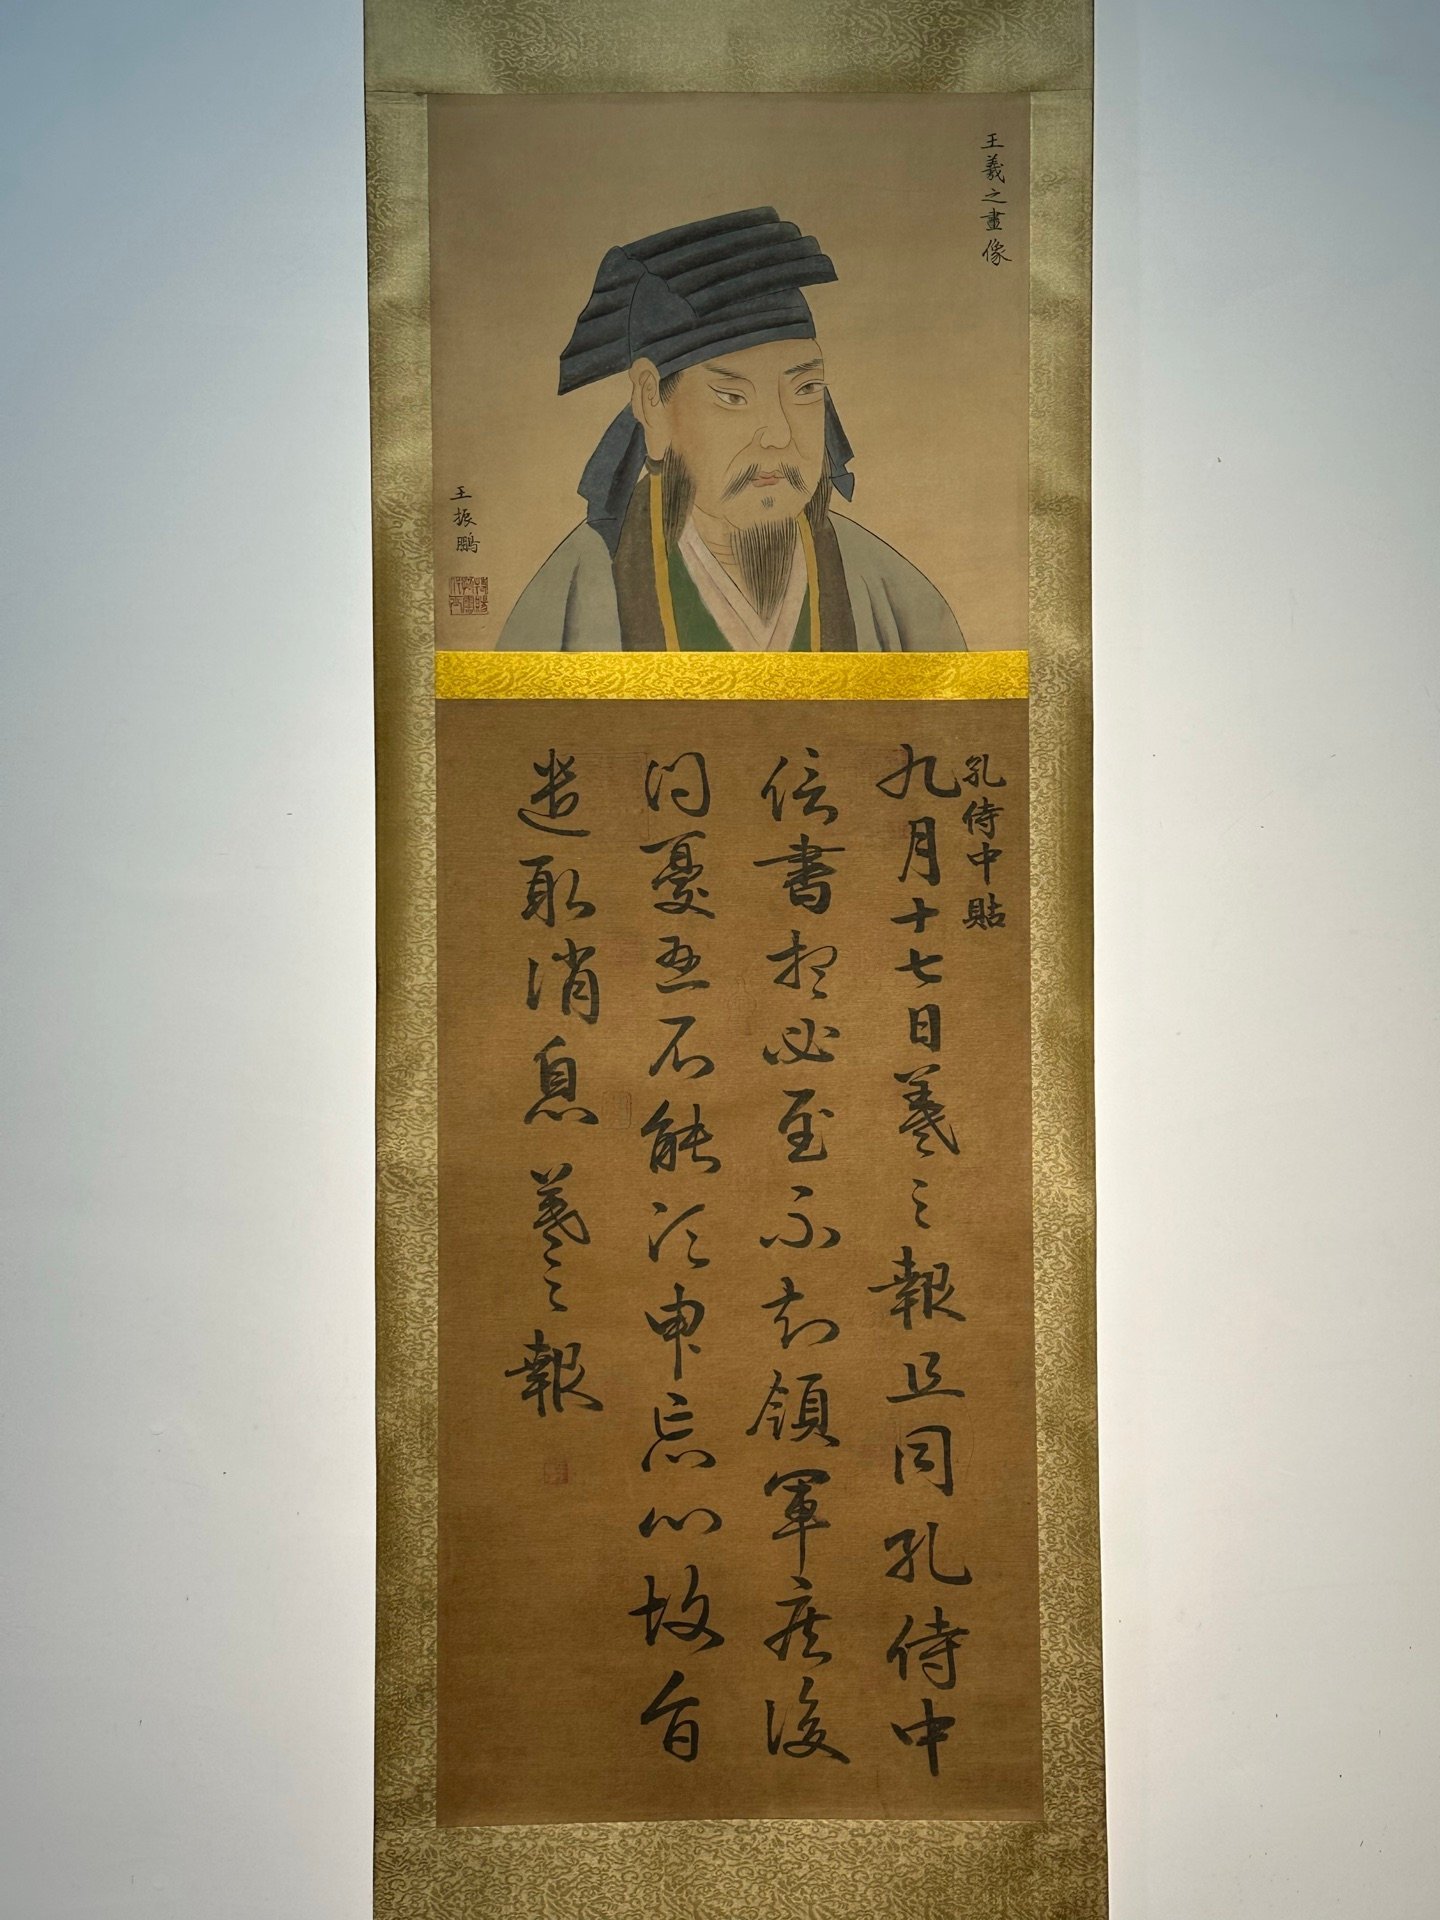 王羲之畫像
王振鵬
孔侍中貼
九月十七日羲之報且因孔侍中
信書想必至不知領軍疾後
問憂吾不能須申忘心故旨
遣取消息羲之報